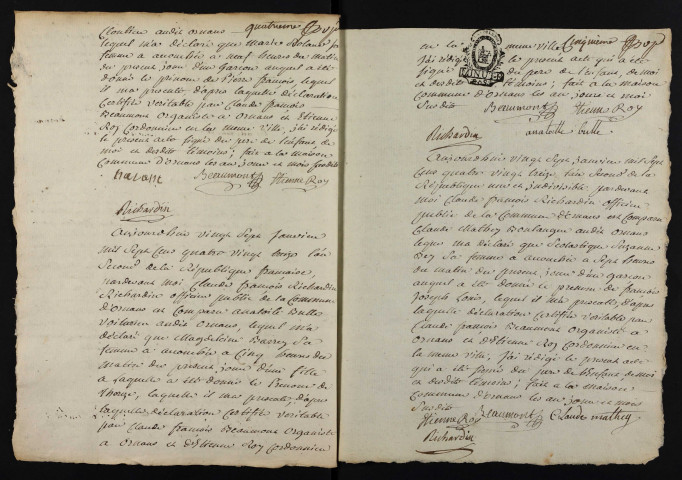 Cloutier audit ornans quatrieme
lequel m'a déclaré que Marie
femme a accouchée a neuf heures du matin
du present jour d'un garcon auquel a été
donné le prenom de Pierre francois, lequel
il m'a presenté, d'apres laquelle déclaration
Certifiée veritable par Claude francois
Beaumont organiste a ornans et Etienne
Roy Cordonnier en la meme ville, j'ai rédigé
le present acte signé du pere de l'enfant, de
moi et desdits temoins; fait a la maison
Commune d'ornans les an, jour et mois susdits
Beaumont Etienne Roy
Richardin
Aujourd'hui vingt Sept Janvier
mil Sept Cens quatre vingt treize l'an
Second de la République francaise,
pardevant moi Claude francois Richardin
Richardin officier public de la Commune
d'ornans est Comparu anatoile Bulle
voiturier audit ornans, lequel m'a
déclaré que Magdeleine
femme a accouchée a Cinq heures du
Matin du present jour d'une fille
a laquelle a été donné le prenom de
laquelle il m'a presentée, d'apres
laquelle déclaration Certifiée veritable
par Claude francois Beaumont organiste
a ornans et d'Etienne Roy Cordonnier
en la meme ville, Cinquieme
j'ai rédigé le present acte qui a été
signé du pere de l'enfant, de moi
et desdits temoins; fait a la maison
Commune d'ornans les an, jour et mois
Susdits Beaumont Etienne Roy
anatoille bulle
Richardin
Aujourd'hui vingt Sept janvier mil Sept
Cens quatre vingt treize l'an Second de la
République une et indivisible pardevant
moi Claude francois Richardin officier
public de la Commune d'ornans est Comparu
Claude Mathey Boulanger audit ornans
lequel m'a déclaré que Scholastique Suzanne
Rey Sa femme a accouchée a Sept heures
du matin du present jour d'un garcon
auquel a été donné le prenom de francois
Joseph Louis, lequel il m'a presenté, d'apres
laquelle déclaration Certifiée veritable par
Claude francois Beaumont organiste a
ornans et d'Etienne Roy Cordonnier en
la meme ville, j'ai rédigé le present acte
qui a été signé du pere de l'enfant, de moi
et desdits temoins; fait a la maison
Commune d'ornans les an, jour et mois
Susdits Beaumont Claude mathey
Etienne Roy
Richardin